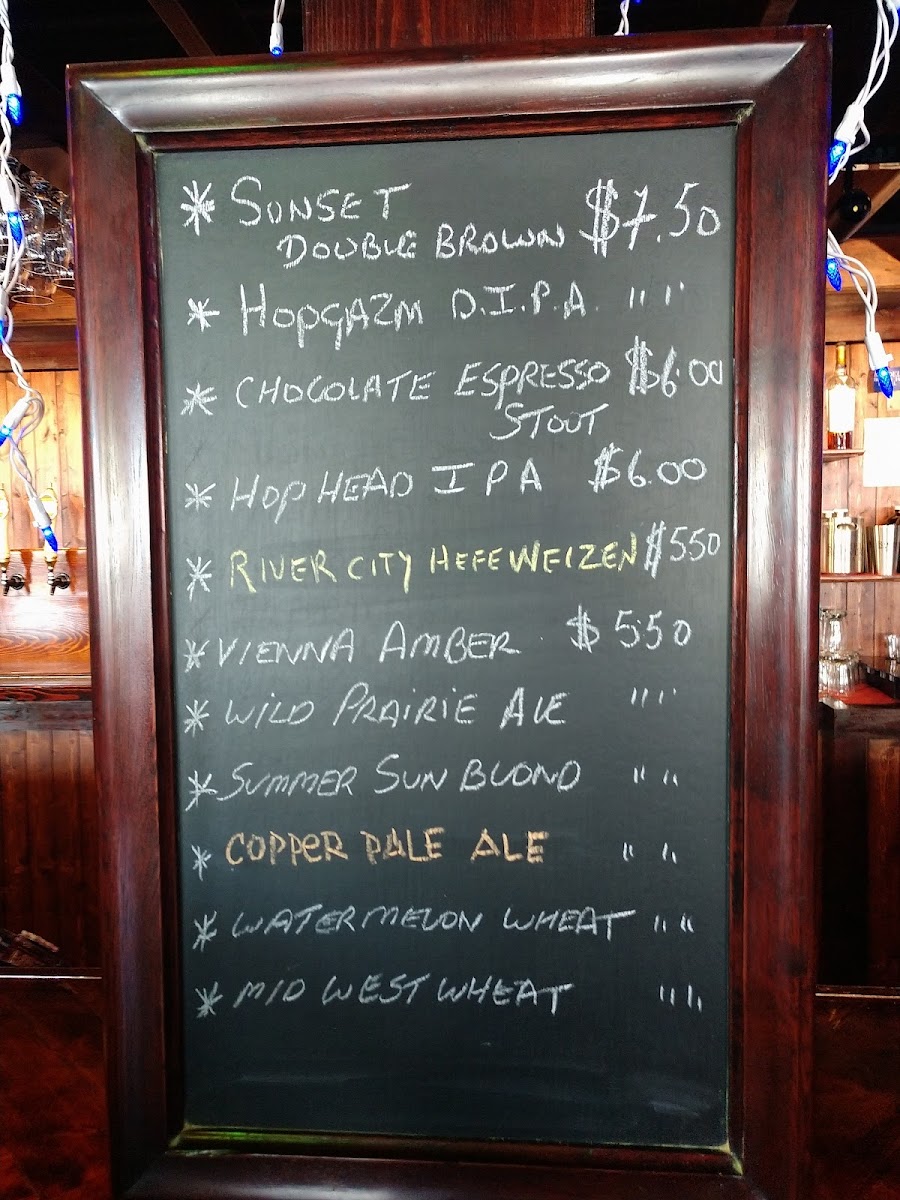 * SUNSET
DOUBLE BROWN $7.50
* HOPGAZM D.I.P.A. " "
* CHOCOLATE ESPRESSO $6.00
STOUT
* HOP HEAD IPA $6.00
* RIVER CITY HEFEWEIZEN $550
* VIENNA AMBER $550
* WILD PRAIRIE ALE " "
* SUMMER SUN BLOND " "
* COPPER PALE ALE " "
* WATERMELON WHEAT " "
* MID WEST WHEAT " "